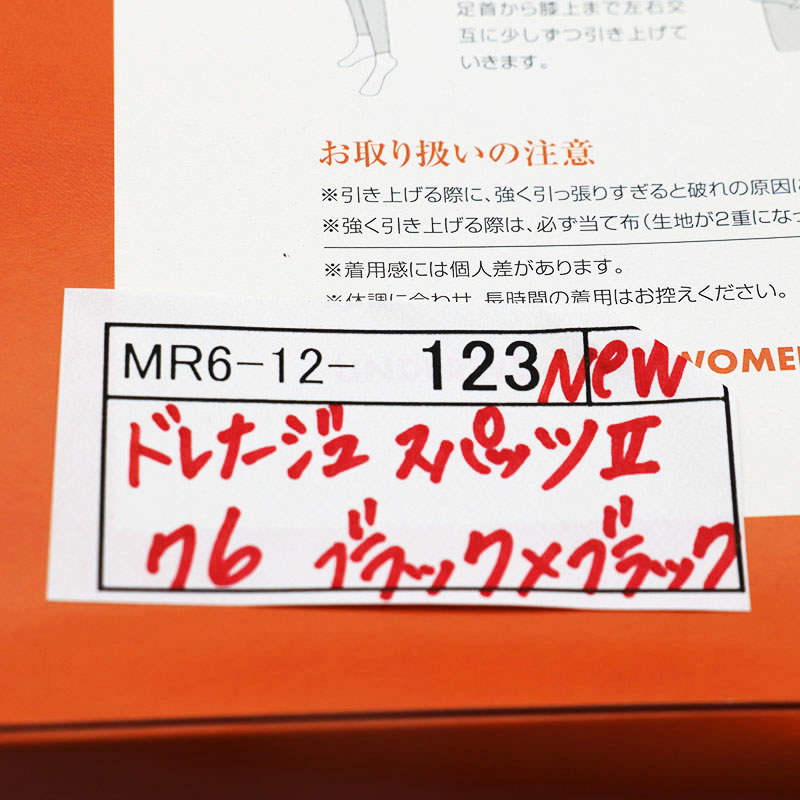 足首から膝上まで左右交
互に少しずつ引き上げて
いきます。
お取り扱いの注意
※引き上げる際に、強く引っ張りすぎると破れの原因に
※強く引き上げる際は、必ず当て布（生地が2重になっ
※着用感には個人差があります。
※体調に合わせ、長時間の着用はお控えください。
WOME
MR6-12- 123 New
ドレナージュ スパッツⅡ
76 ブラック×ブラック